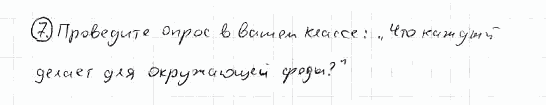 7. Проведите опрос в вашем классе: „Что каждый
делает для окружающей среды?"